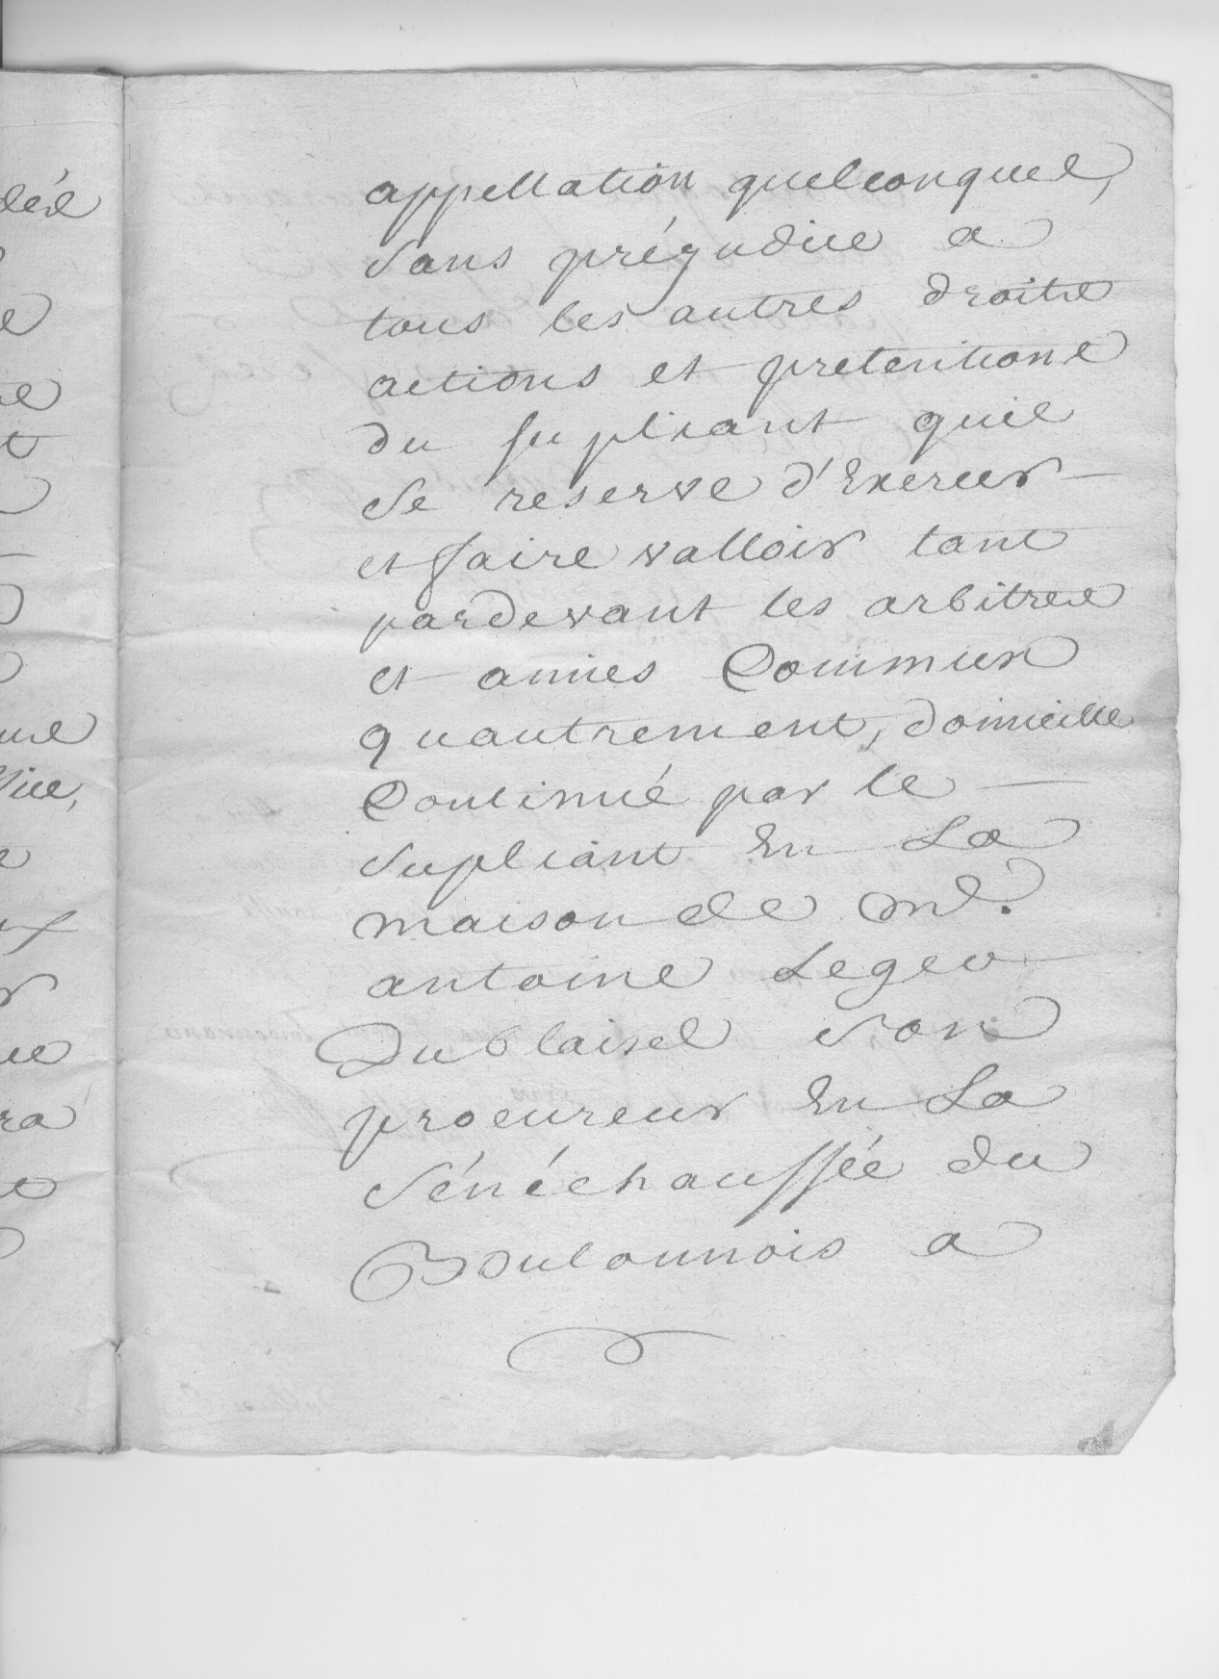 appellation quelconques,
sans préjudice a
tous les autres droits
actions et pretentions
du supliant quil
se reserve d'Exercer
et faire valloir tant
pardevant les arbitres
et amies Commun
quautrement, domicille
Continué par le
supliant En La
maison de me.
antoine Legeo
Dublaisel son
procureur En La
sénéchaussée du
Boulonnois a